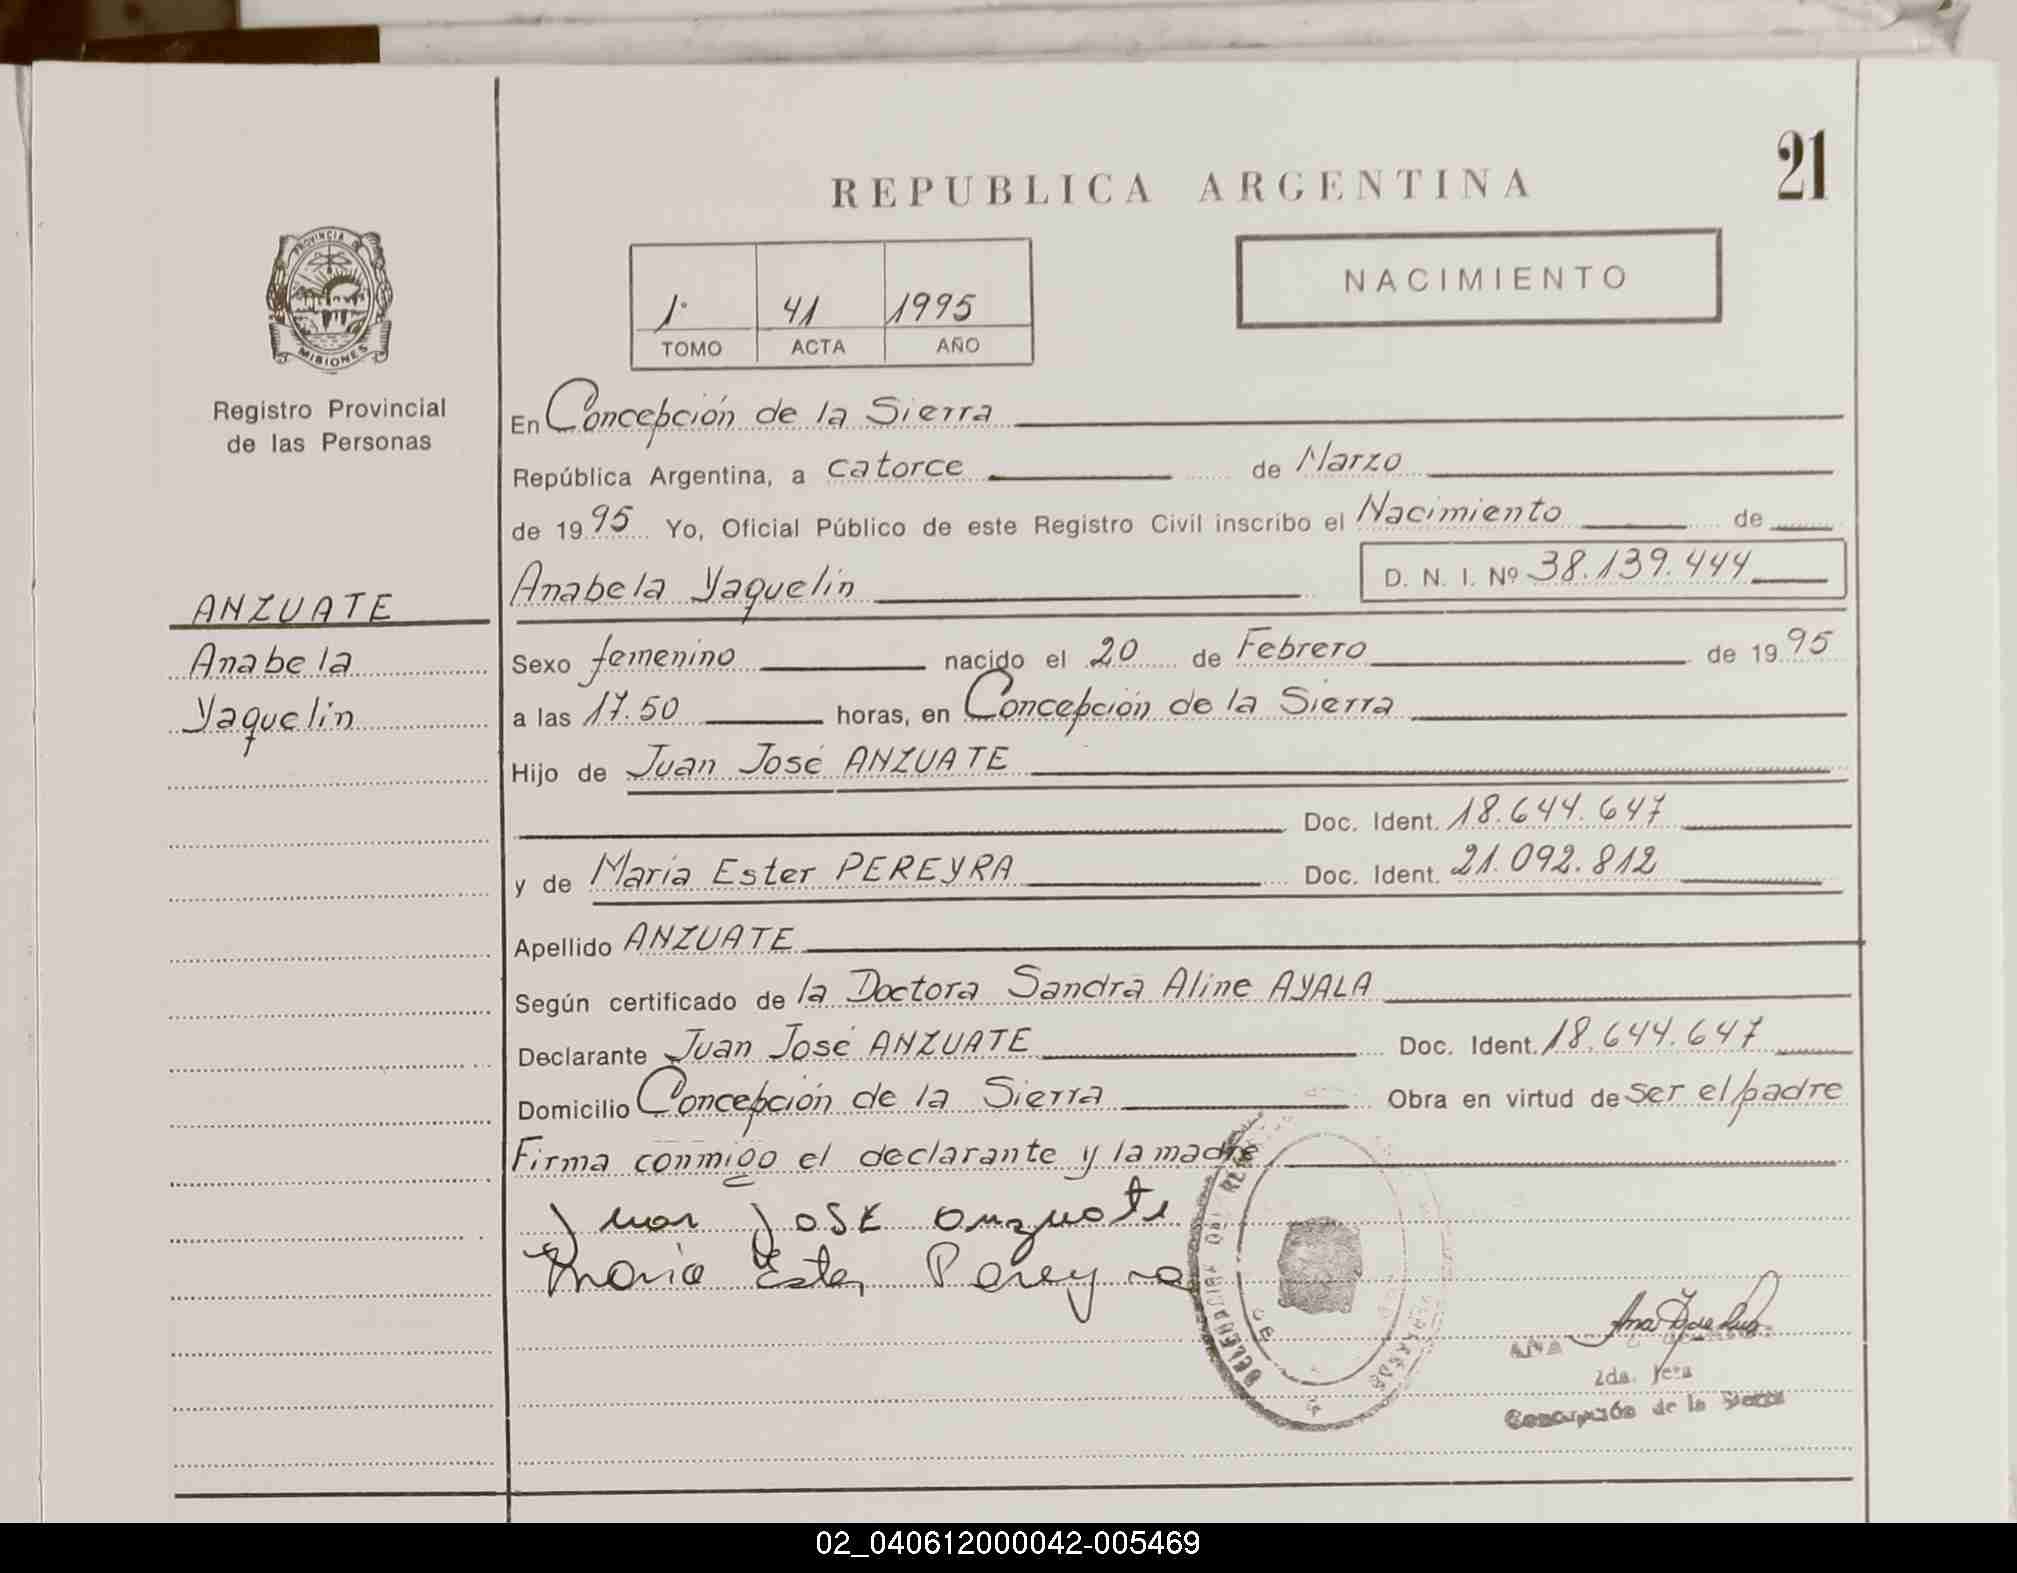 21
REPUBLICA ARGENTINA
NACIMIENTO
PROVINCIA DE
MISIONES
1º 41 1995
TOMO ACTA AÑO
Registro Provincial
de las Personas
ANZUATE
Anabela
Yaquelin
En Concepción de la Sierra
República Argentina, a catorce de Marzo
de 1995 Yo, Oficial Público de este Registro Civil inscribo el Nacimiento de
Anabela Yaquelin D. N. I. Nº 38.139.444
Sexo femenino nacido el 20 de Febrero de 1995
a las 17.50 horas, en Concepción de la Sierra
Hijo de Juan José ANZUATE
Doc. Ident. 18.644.647
y de María Ester PEREYRA Doc. Ident. 21.092.812
Apellido ANZUATE
Según certificado de la Doctora Sandra Aline AYALA
Declarante Juan José ANZUATE Doc. Ident. 18.644.647
Domicilio Concepción de la Sierra Obra en virtud de ser el padre
Firma conmigo el declarante y la madre
Juan JOSE anzuate
Maria Ester Pereyra
ANA
2da. Jefa
Concepción de la Sierra
02_040612000042-005469